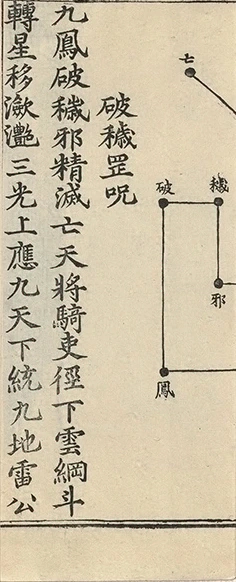 亡
穢
邪
破
鳳
破穢罡咒
九鳳破穢邪精滅亡天將騎吏徑下雲綱斗
轉星移潋灧三光上應九天下統九地雷公